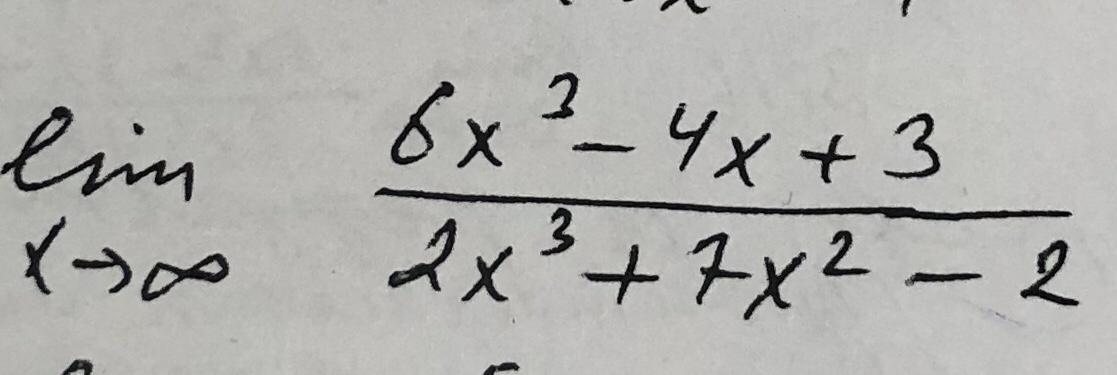 lim 6x³ - 4x + 3
x→∞ 2x³ + 7x² - 2